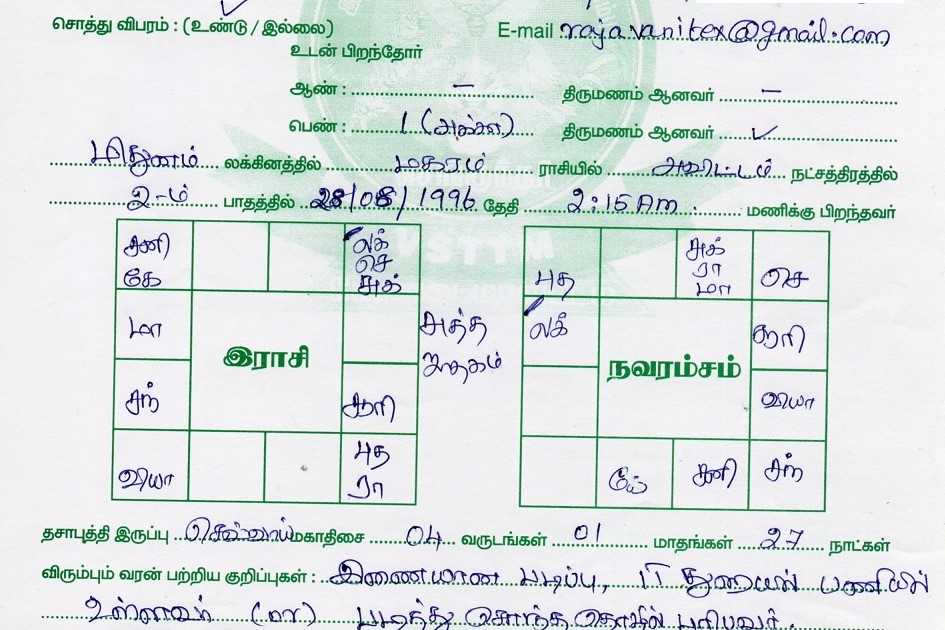 சொத்து விபரம் : (உண்டு / இல்லை) E-mail : rajavanitex@gmail.com
உடன் பிறந்தோர்
ஆண் : – திருமணம் ஆனவர் –
பெண் : 1 (அக்கா) திருமணம் ஆனவர் ✓
மிதுனம் லக்கினத்தில் மகரம் ராசியில் அவிட்டம் நட்சத்திரத்தில்
2-ம் பாதத்தில் 28/08/1996 தேதி 2:15 Am மணிக்கு பிறந்தவர்
சனி கே லக் செ சுக்
மா
சந் சூரி
வியா புத ரா
இராசி
புத சுக் ரா மா செ
லக் சூரி
வியா
கே சனி சந்
நவாம்சம்
VSTTM
தசாபுத்தி இருப்பு செவ்வாய் மகாதிசை 04 வருடங்கள் 01 மாதங்கள் 27 நாட்கள்
விரும்பும் வரன் பற்றிய குறிப்புகள் : இணையான படிப்பு, IT துறையில் பணியில்
உள்ளவர் (or) படித்து சொந்த தொழில் புரிபவர்.